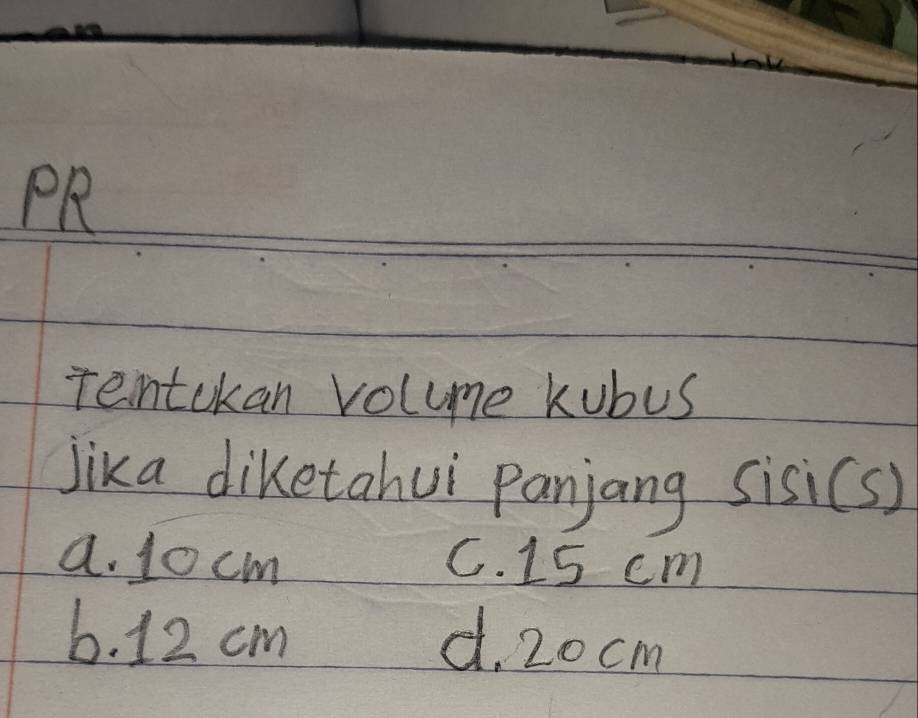 PR
Tentukan volume kubus
jika diketahui panjang sisi(s)
a. 10 cm c. 15 cm
b. 12 cm d. 20 cm